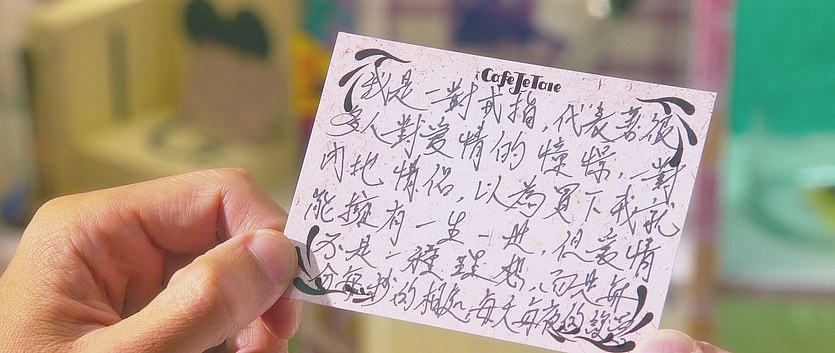 CafeTeTale
我是一對戒指,代表著很
多人對愛情的憧憬,一對
內地情侶,以為買下我就
能擁有一生一世,但愛情
不是一種理想,而是每
分每秒的相處每天每夜的